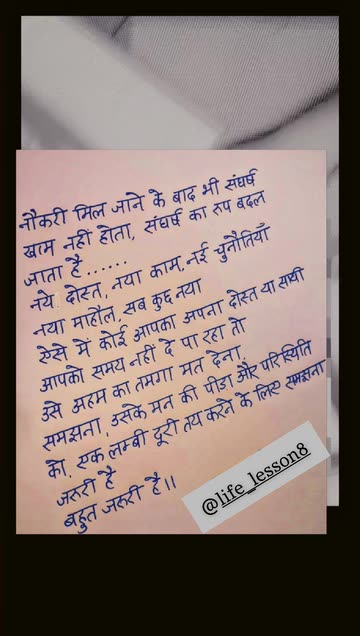 नौकरी मिल जाने के बाद भी संघर्ष
खत्म नहीं होता, संघर्ष का रुप बदल
जाता है......
नये दोस्त, नया काम, नई चुनौतियाँ
नया माहौल, सब कुछ नया
ऐसे में कोई आपका अपना दोस्त या साथी
आपको समय नहीं दे पा रहा तो
उसे अहम का तमगा मत देना
समझना, उसके मन की पीड़ा और परिस्थिति
को, एक लम्बी दूरी तय करने के लिए समझना
जरुरी है
बहुत जरुरी है।।
@life_lesson8